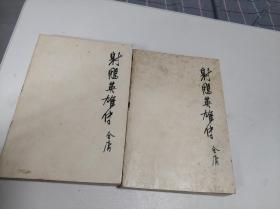 射鵰英雄传
金庸
射鵰英雄传
金庸